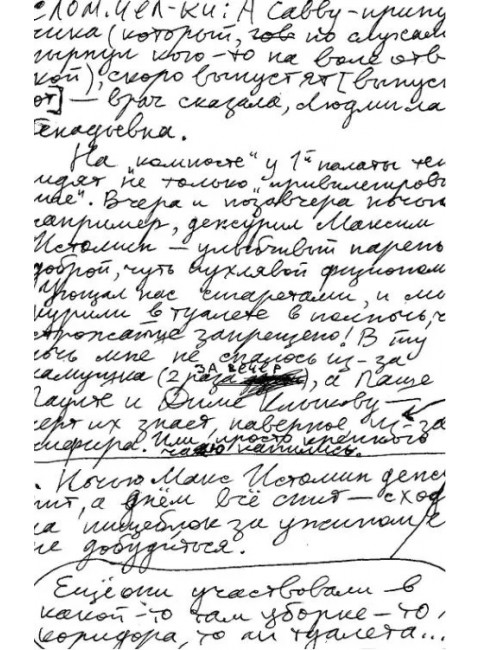 слом.чел-ки: А Савву-припу
чика (который, по слухам
пырнул кого-то на воле отв
кой), скоро выпустят [выпуст
ят] — врач сказала, Людмила
Генадьевна.
На „компосте" у 1й палаты теп
идят не только „привилегирова
ные". Вчера и позавчера ночью
например, дежурил Максим
Истомин — улыбчивый парень
доброй, чуть пухлявой физионом
Угощал нас сигаретами, и мы
курили в туалете в полночь, ч
строжайше запрещено! В ту
ночь мне не спалось из-за
(2 раза за вечер), а Паше
и Диме Клыкову —
чёрт их знает, наверное, из-за
чефира. Или просто крепкого
чаю напились.
. Ночью Макс Истомин дежу
рит, а днём всё спит — сход
на пищеблок за ужином е
не добудиться.
Ещё они участвовали в
какой-то там уборке — то
коридора, то ли туалета...